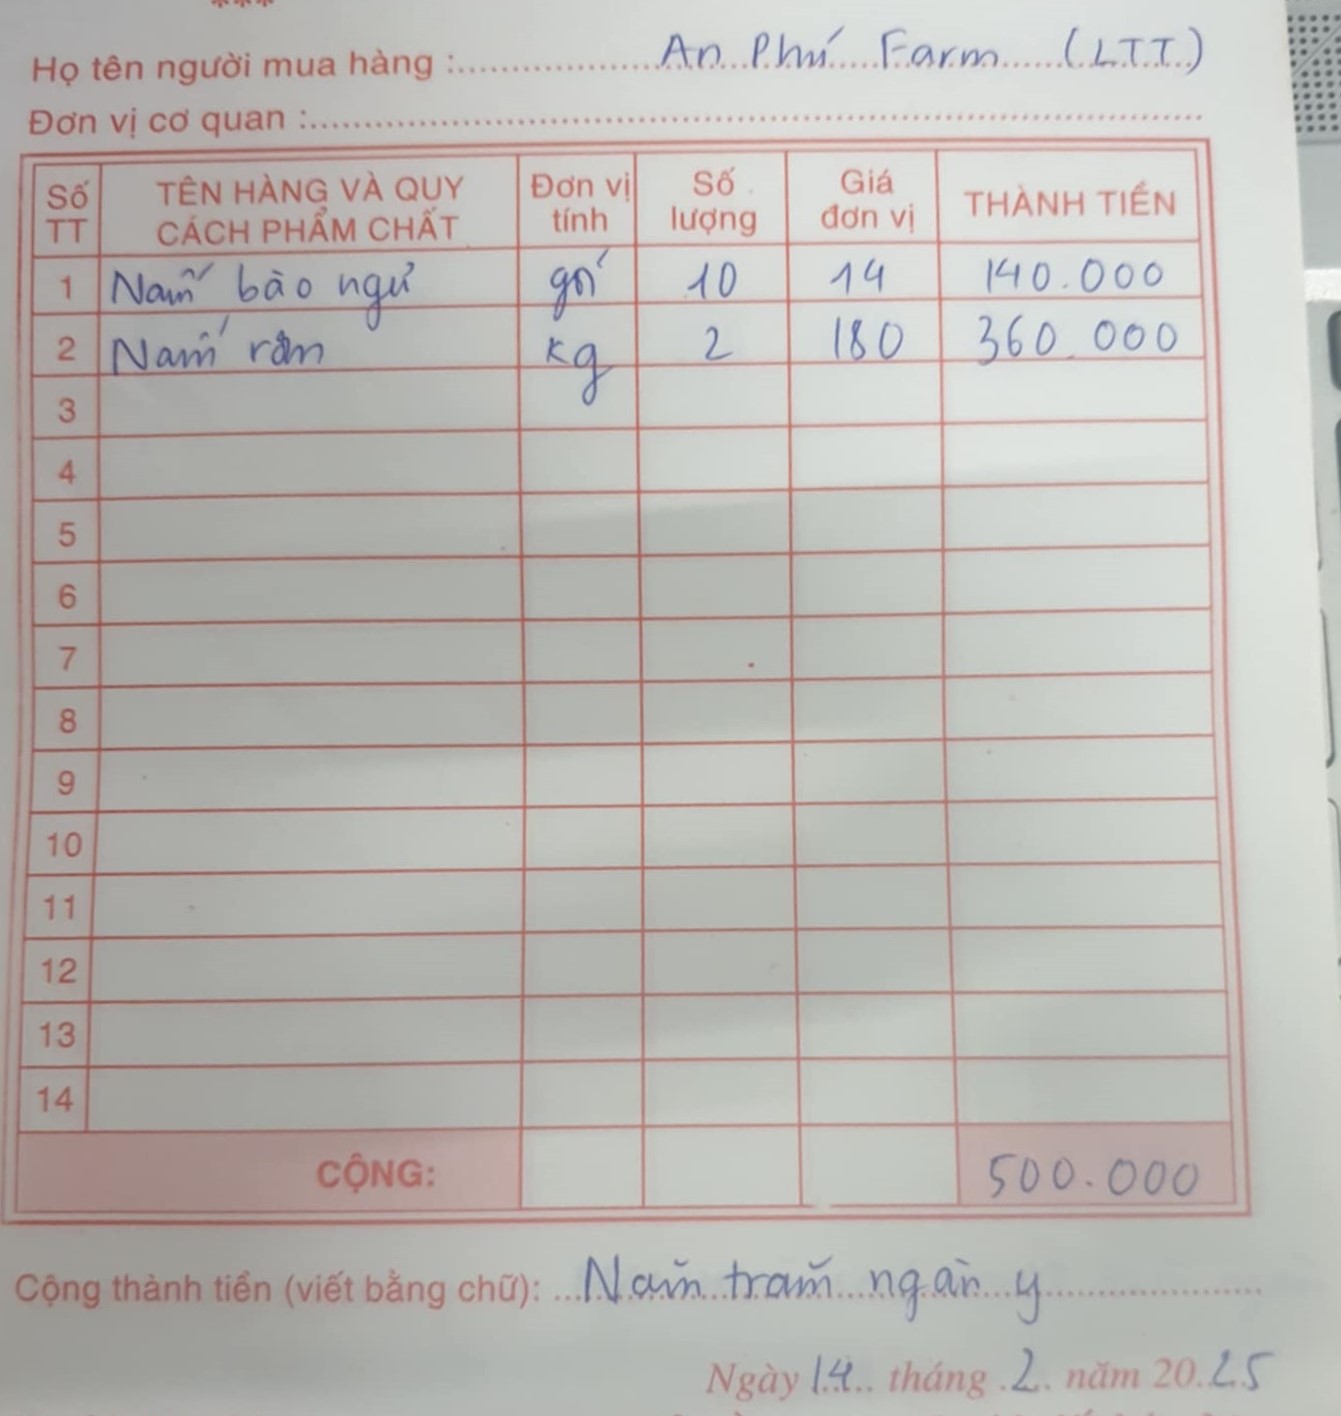 ***
Họ tên người mua hàng : An Phú Farm (LTT)
Đơn vị cơ quan :
Số TT TÊN HÀNG VÀ QUY CÁCH PHẨM CHẤT Đơn vị tính Số lượng Giá đơn vị THÀNH TIỀN
1 Nấm bào ngư gói 10 14 140.000
2 Nấm rơm kg 2 180 360.000
3
4
5
6
7
8
9
10
11
12
13
14
CỘNG: 500.000
Cộng thành tiền (viết bằng chữ): Năm trăm ngàn y
Ngày 14 tháng 2 năm 2025